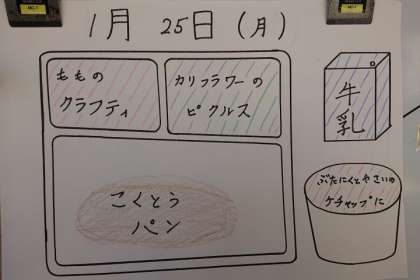 1月 25日 (月)
ももの
クラフティ
カリフラワーの
ピクルス
牛乳
こくとう
パン
ぶたにくとやさいの
ケチャップに